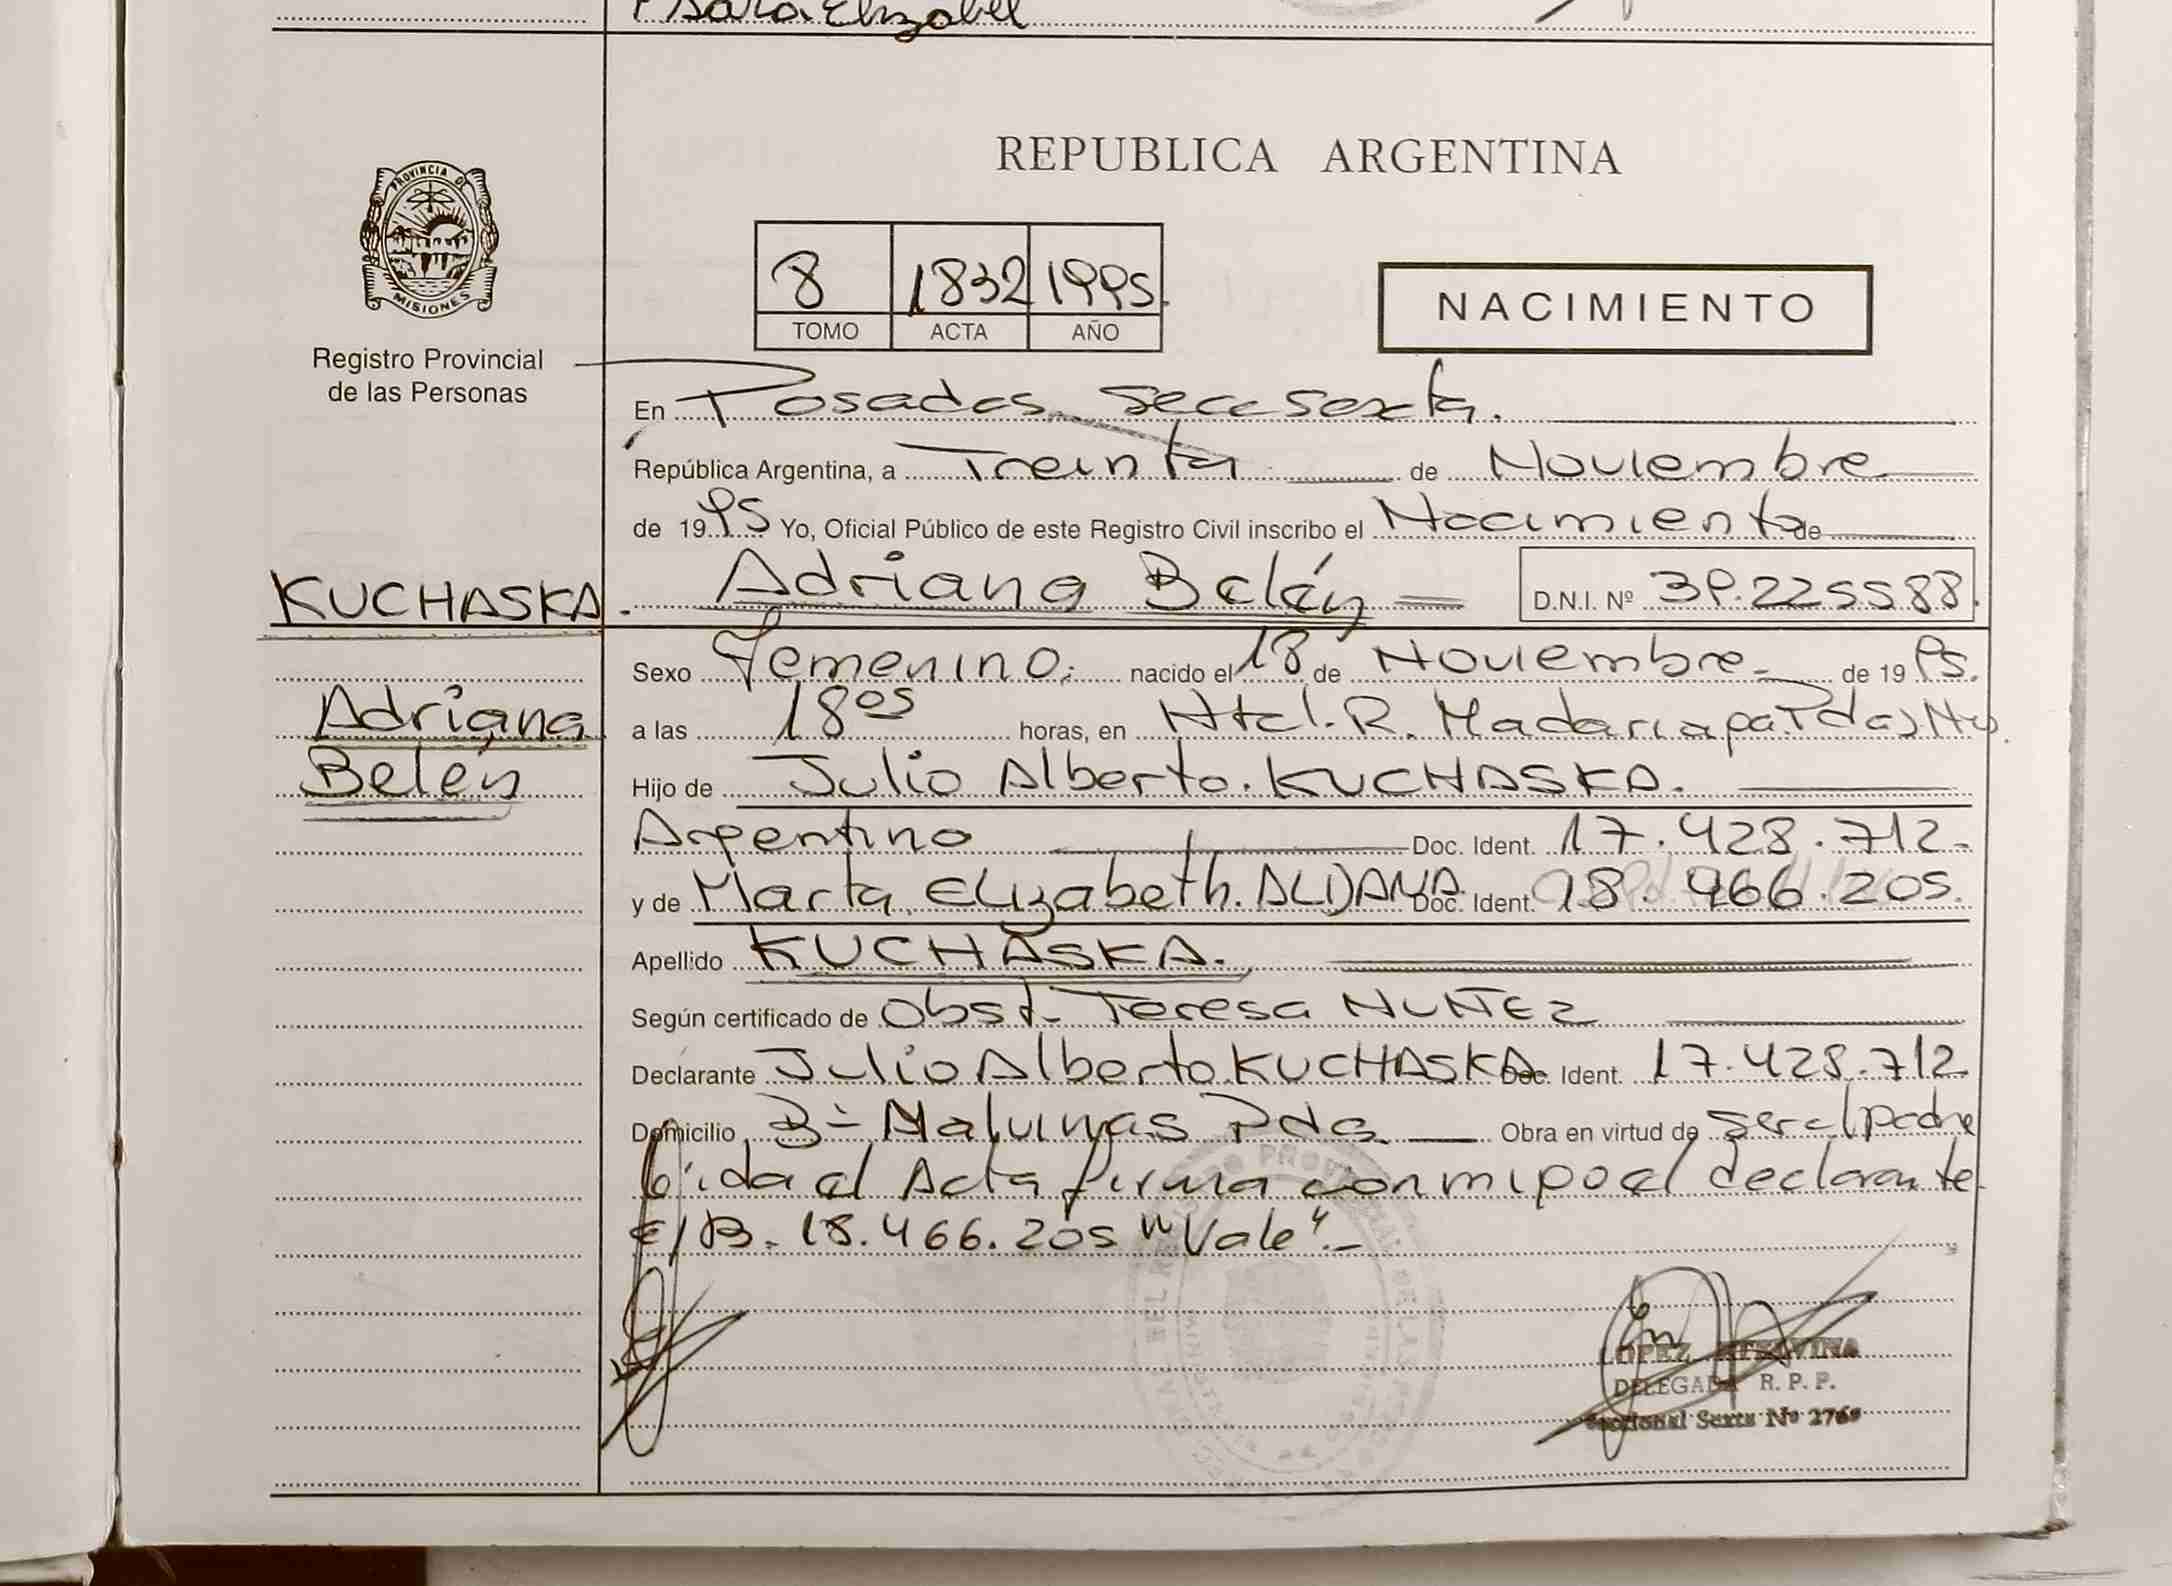 Sara Elizabet
PROVINCIA DE
MISIONES
Registro Provincial
de las Personas
REPUBLICA ARGENTINA
8 1832 1995.
TOMO ACTA AÑO
NACIMIENTO
En Posadas Secc Sexta.
República Argentina, a Treinta de Noviembre
de 1995 Yo, Oficial Público de este Registro Civil inscribo el Nacimiento de
KUCHASKA. Adriana Belén D.N.I. Nº 39.225588.
Sexo Femenino. nacido el 18 de Noviembre de 1995.
Adriana
a las 18 05 horas, en Htal. R. Madariaga Pdas, Ms.
Belén
Hijo de Julio Alberto. KUCHASKA.
Argentino Doc. Ident. 17.428.712.
y de Marta Elizabeth. ALDAMA. Doc. Ident. 18.466.205.
Apellido KUCHASKA.
Según certificado de Obst. Teresa NUÑEZ
Declarante Julio Alberto KUCHASKA Doc. Ident. 17.428.712
Domicilio Bº Malvinas Pdas. Obra en virtud de ser el padre
leida el Acta firma conmigo el declarante
E/B. 18.466.205 "Vale".
LOPEZ
DELEGADA R. P. P.
Seccional Sexta Nº 2769